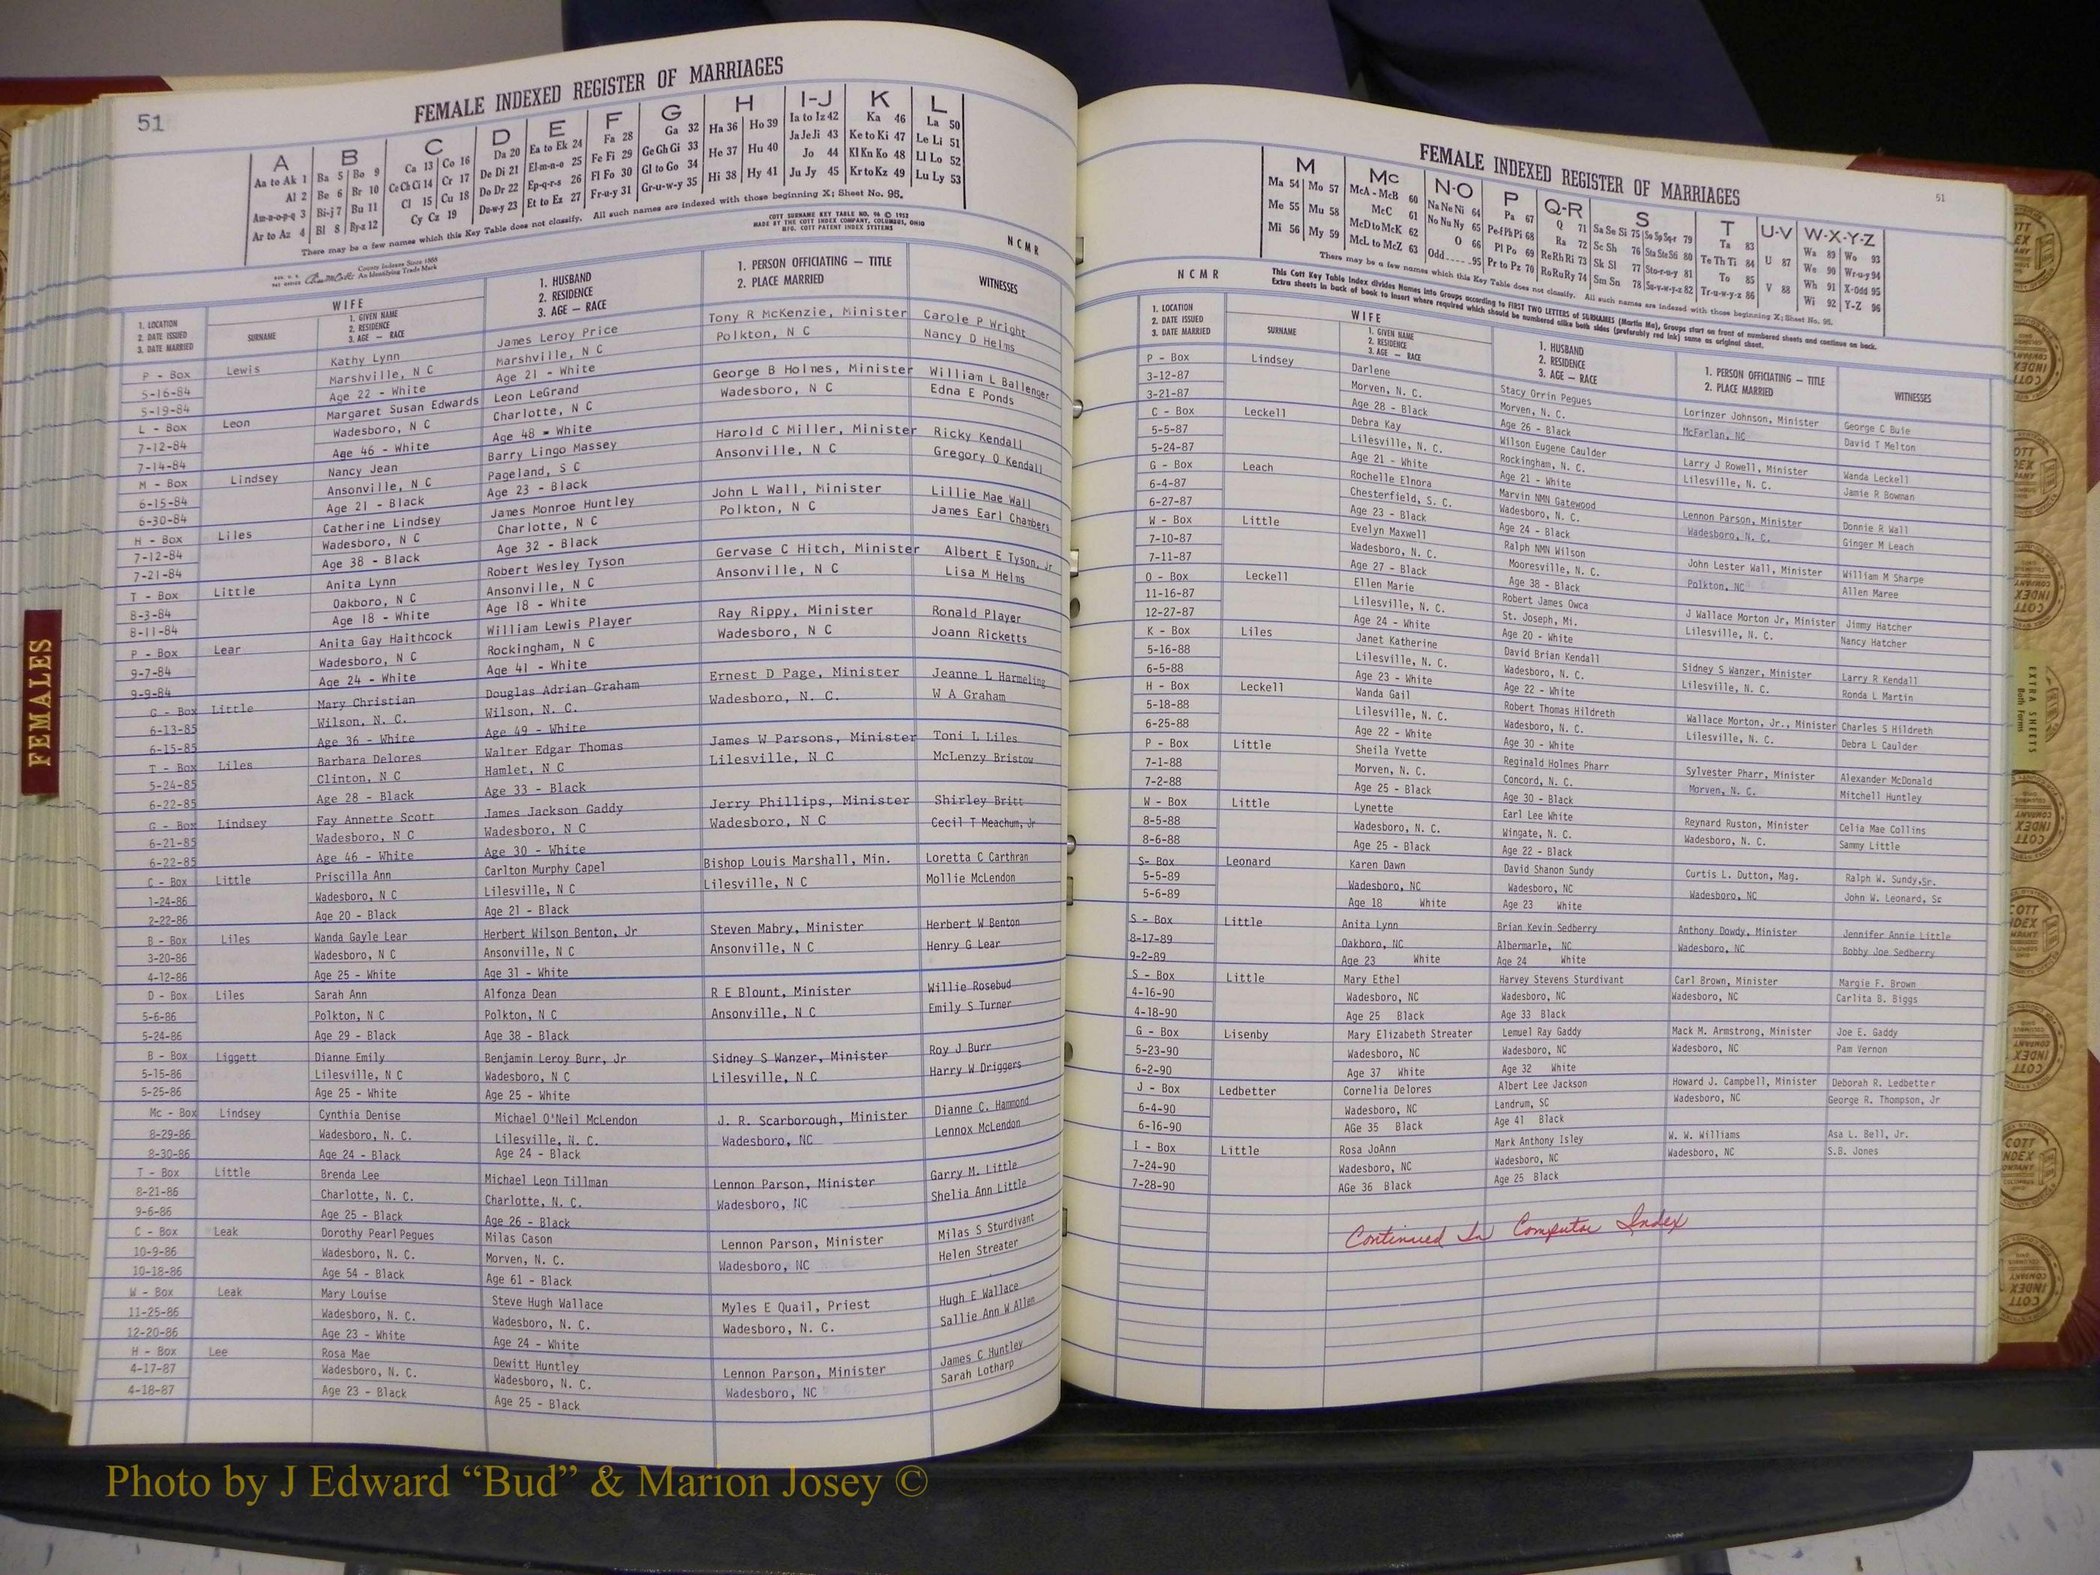 51
FEMALE INDEXED REGISTER OF MARRIAGES
A B C D E F G H I-J K L
Aa to Ak 1 Ba 5 Bo 9 Ca 13 Co 16 Da 20 Ea to Ek 24 Fa 28 Ga 32 Ha 36 Ho 39 Ia to Iz 42 Ka 46 La 50
Al 2 Be 6 Br 10 Ce Ch Ci 14 Cr 17 De Di 21 El-m-n-o 25 Fe Fi 29 Ge Gh Gi 33 He 37 Hu 40 Ja Je Ji 43 Ke to Ki 47 Le Li 51
Am-n-o-p-q 3 Bi-j 7 Bu 11 Cl 15 Cu 18 Do Dr 22 Ep-q-r-s 26 Fl Fo 30 Gl to Go 34 Hi 38 Hy 41 Jo 44 Kl Kn Ko 48 Ll Lo 52
Ar to Az 4 Bl 8 By-z 12 Cy Cz 19 Du-w-y 23 Et to Ez 27 Fr-u-y 31 Gr-u-w-y 35 Ju Jy 45 Kr to Kz 49 Lu Ly 53
There may be a few names which this Key Table does not classify. All such names are indexed with those beginning X; Sheet No. 95.
COTT SURNAME KEY TABLE NO. 96 © 1952
MADE BY THE COTT INDEX COMPANY, COLUMBUS, OHIO
MFG. COTT PATENT INDEX SYSTEMS
County Indexes Since 1888
An Identifying Trade Mark
NCMR
1. LOCATION
2. DATE ISSUED
3. DATE MARRIED
WIFE
SURNAME
1. GIVEN NAME
2. RESIDENCE
3. AGE — RACE
1. HUSBAND
2. RESIDENCE
3. AGE — RACE
1. PERSON OFFICIATING — TITLE
2. PLACE MARRIED
WITNESSES
P - Box Lewis Kathy Lynn James Leroy Price Tony R McKenzie, Minister Carole P Wright
5-16-84 Marshville, N C Marshville, N C Polkton, N C Nancy D Helms
5-19-84 Age 22 - White Age 21 - White
L - Box Leon Margaret Susan Edwards Leon LeGrand George B Holmes, Minister William L Ballenger
7-12-84 Wadesboro, N C Charlotte, N C Wadesboro, N C Edna E Ponds
7-14-84 Age 46 - White Age 48 - White
M - Box Lindsey Nancy Jean Barry Lingo Massey Harold C Miller, Minister Ricky Kendall
6-15-84 Ansonville, N C Pageland, S C Ansonville, N C Gregory O Kendall
6-30-84 Age 21 - Black Age 23 - Black
H - Box Liles Catherine Lindsey James Monroe Huntley John L Wall, Minister Lillie Mae Wall
7-12-84 Wadesboro, N C Charlotte, N C Polkton, N C James Earl Chambers
7-21-84 Age 38 - Black Age 32 - Black
T - Box Little Anita Lynn Robert Wesley Tyson Gervase C Hitch, Minister Albert E Tyson, Jr
8-3-84 Oakboro, N C Ansonville, N C Ansonville, N C Lisa M Helms
8-11-84 Age 18 - White Age 18 - White
P - Box Lear Anita Gay Haithcock William Lewis Player Ray Rippy, Minister Ronald Player
9-7-84 Wadesboro, N C Rockingham, N C Wadesboro, N C Joann Ricketts
9-9-84 Age 24 - White Age 41 - White
G - Box Little Mary Christian Douglas Adrian Graham Ernest D Page, Minister Jeanne L Harmeling
6-13-85 Wilson, N. C. Wilson, N. C. Wadesboro, N. C. W A Graham
6-15-85 Age 36 - White Age 49 - White
T - Box Liles Barbara Delores Walter Edgar Thomas James W Parsons, Minister Toni L Liles
5-24-85 Clinton, N C Hamlet, N C Lilesville, N C McLenzy Bristow
6-22-85 Age 28 - Black Age 33 - Black
G - Box Lindsey Fay Annette Scott James Jackson Gaddy Jerry Phillips, Minister Shirley Britt
6-21-85 Wadesboro, N C Wadesboro, N C Wadesboro, N C Cecil T Meachum, Jr
6-22-85 Age 46 - White Age 30 - White
C - Box Little Priscilla Ann Carlton Murphy Capel Bishop Louis Marshall, Min. Loretta C Carthran
1-24-86 Wadesboro, N C Lilesville, N C Lilesville, N C Mollie McLendon
2-22-86 Age 20 - Black Age 21 - Black
B - Box Liles Wanda Gayle Lear Herbert Wilson Benton, Jr Steven Mabry, Minister Herbert W Benton
3-20-86 Wadesboro, N C Ansonville, N C Ansonville, N C Henry G Lear
4-12-86 Age 25 - White Age 31 - White
D - Box Liles Sarah Ann Alfonza Dean R E Blount, Minister Willie Rosebud
5-6-86 Polkton, N C Polkton, N C Ansonville, N C Emily S Turner
5-24-86 Age 29 - Black Age 38 - Black
B - Box Liggett Dianne Emily Benjamin Leroy Burr, Jr Sidney S Wanzer, Minister Roy J Burr
5-15-86 Lilesville, N C Wadesboro, N C Lilesville, N C Harry W Driggers
5-25-86 Age 25 - White Age 25 - White
Mc - Box Lindsey Cynthia Denise Michael O'Neil McLendon J. R. Scarborough, Minister Dianne C. Hammond
8-29-86 Wadesboro, N. C. Lilesville, N. C. Wadesboro, NC Lennox McLendon
8-30-86 Age 24 - Black Age 24 - Black
T - Box Little Brenda Lee Michael Leon Tillman Lennon Parson, Minister Garry M. Little
8-21-86 Charlotte, N. C. Charlotte, N. C. Wadesboro, NC Shelia Ann Little
9-6-86 Age 25 - Black Age 26 - Black
C - Box Leak Dorothy Pearl Pegues Milas Cason Lennon Parson, Minister Milas S Sturdivant
10-9-86 Wadesboro, N. C. Morven, N. C. Wadesboro, NC Helen Streater
10-18-86 Age 54 - Black Age 61 - Black
W - Box Leak Mary Louise Steve Hugh Wallace Myles E Quail, Priest Hugh E Wallace
11-25-86 Wadesboro, N. C. Wadesboro, N. C. Wadesboro, N. C. Sallie Ann W Allen
12-20-86 Age 23 - White Age 24 - White
H - Box Lee Rosa Mae Dewitt Huntley Lennon Parson, Minister James C Huntley
4-17-87 Wadesboro, N. C. Wadesboro, N. C. Wadesboro, NC Sarah Lotharp
4-18-87 Age 23 - Black Age 25 - Black
FEMALES
FEMALE INDEXED REGISTER OF MARRIAGES
51
M Mc N-O P Q-R S T U-V W-X-Y-Z
Ma 54 Mo 57 McA - McB 60 Na Ne Ni 64 Pa 67 Q 71 Sa Se Si 75 So Sp Sq-r 79 Ta 83 U 87 Wa 89 Wo 93
Me 55 Mu 58 McC 61 No Nu Ny 65 Pe-f Ph Pi 68 Ra 72 Sc Sh 76 Sta Ste Sti 80 Te Th Ti 84 V 88 We 90 Wr-u-y 94
Mi 56 My 59 McD to McK 62 O 66 Pl Po 69 Re Rh Ri 73 Sk Sl 77 Sto-r-u-y 81 To 85 Wh 91 X-Odd 95
McL to McZ 63 Odd 95 Pr to Pz 70 Ro Ru Ry 74 Sm Sn 78 Su-v-w-y-z 82 Tr-u-w-y-z 86 Wi 92 Y-Z 96
There may be a few names which this Key Table does not classify. All such names are indexed with those beginning X; Sheet No. 95.
NCMR
This Cott Key Table Index divides Names into Groups according to FIRST TWO LETTERS of SURNAMES (Martin Ma), Groups start on front of numbered sheets and continue on back.
Extra sheets in back of book to insert where required which should be numbered alike both sides (preferably red ink) same as original sheet.
1. LOCATION
2. DATE ISSUED
3. DATE MARRIED
WIFE
SURNAME
1. GIVEN NAME
2. RESIDENCE
3. AGE — RACE
1. HUSBAND
2. RESIDENCE
3. AGE — RACE
1. PERSON OFFICIATING — TITLE
2. PLACE MARRIED
WITNESSES
P - Box Lindsey Darlene Stacy Orrin Pegues Lorinzer Johnson, Minister George C Buie
3-12-87 Morven, N. C. Morven, N. C. McFarlan, NC David T Melton
3-21-87 Age 28 - Black Age 26 - Black
C - Box Leckell Debra Kay Wilson Eugene Caulder Larry J Rowell, Minister Wanda Leckell
5-5-87 Lilesville, N. C. Rockingham, N. C. Lilesville, N. C. Jamie R Bowman
5-24-87 Age 21 - White Age 21 - White
G - Box Leach Rochelle Elnora Marvin NMN Gatewood Lennon Parson, Minister Donnie R Wall
6-4-87 Chesterfield, S. C. Wadesboro, N. C. Wadesboro, N. C. Ginger M Leach
6-27-87 Age 23 - Black Age 24 - Black
W - Box Little Evelyn Maxwell Ralph NMN Wilson John Lester Wall, Minister William M Sharpe
7-10-87 Wadesboro, N. C. Mooresville, N. C. Polkton, NC Allen Maree
7-11-87 Age 27 - Black Age 38 - Black
O - Box Leckell Ellen Marie Robert James Owca J Wallace Morton Jr, Minister Jimmy Hatcher
11-16-87 Lilesville, N. C. St. Joseph, Mi. Lilesville, N. C. Nancy Hatcher
12-27-87 Age 24 - White Age 20 - White
K - Box Liles Janet Katherine David Brian Kendall Sidney S Wanzer, Minister Larry R Kendall
5-16-88 Lilesville, N. C. Wadesboro, N. C. Lilesville, N. C. Ronda L Martin
6-5-88 Age 23 - White Age 22 - White
H - Box Leckell Wanda Gail Robert Thomas Hildreth Wallace Morton, Jr., Minister Charles S Hildreth
5-18-88 Lilesville, N. C. Wadesboro, N. C. Lilesville, N. C. Debra L Caulder
6-25-88 Age 22 - White Age 30 - White
P - Box Little Sheila Yvette Reginald Holmes Pharr Sylvester Pharr, Minister Alexander McDonald
7-1-88 Morven, N. C. Concord, N. C. Morven, N. C. Mitchell Huntley
7-2-88 Age 25 - Black Age 30 - Black
W - Box Little Lynette Earl Lee White Reynard Ruston, Minister Celia Mae Collins
8-5-88 Wadesboro, N. C. Wingate, N. C. Wadesboro, N. C. Sammy Little
8-6-88 Age 25 - Black Age 22 - Black
S- Box Leonard Karen Dawn David Shanon Sundy Curtis L. Dutton, Mag. Ralph W. Sundy,Sr.
5-5-89 Wadesboro, NC Wadesboro, NC Wadesboro, NC John W. Leonard, Sr
5-6-89 Age 18 White Age 23 White
S - Box Little Anita Lynn Brian Kevin Sedberry Anthony Dowdy, Minister Jennifer Annie Little
8-17-89 Oakboro, NC Albermarle, NC Wadesboro, NC Bobby Joe Sedberry
9-2-89 Age 23 White Age 24 White
S - Box Little Mary Ethel Harvey Stevens Sturdivant Carl Brown, Minister Margie F. Brown
4-16-90 Wadesboro, NC Wadesboro, NC Wadesboro, NC Carlita B. Biggs
4-18-90 Age 25 Black Age 33 Black
G - Box Lisenby Mary Elizabeth Streater Lemuel Ray Gaddy Mack M. Armstrong, Minister Joe E. Gaddy
5-23-90 Wadesboro, NC Wadesboro, NC Wadesboro, NC Pam Vernon
6-2-90 Age 37 White Age 32 White
J - Box Ledbetter Cornelia Delores Albert Lee Jackson Howard J. Campbell, Minister Deborah R. Ledbetter
6-4-90 Wadesboro, NC Landrum, SC Wadesboro, NC George R. Thompson, Jr
6-16-90 AGe 35 Black Age 41 Black
I - Box Little Rosa JoAnn Mark Anthony Isley W. W. Williams Asa L. Bell, Jr.
7-24-90 Wadesboro, NC Wadesboro, NC Wadesboro, NC S.B. Jones
7-28-90 AGe 36 Black Age 25 Black
Continued In Computer Index
EXTRA SHEETS
Both Forms
COTT INDEX COMPANY
Photo by J Edward “Bud” & Marion Josey ©